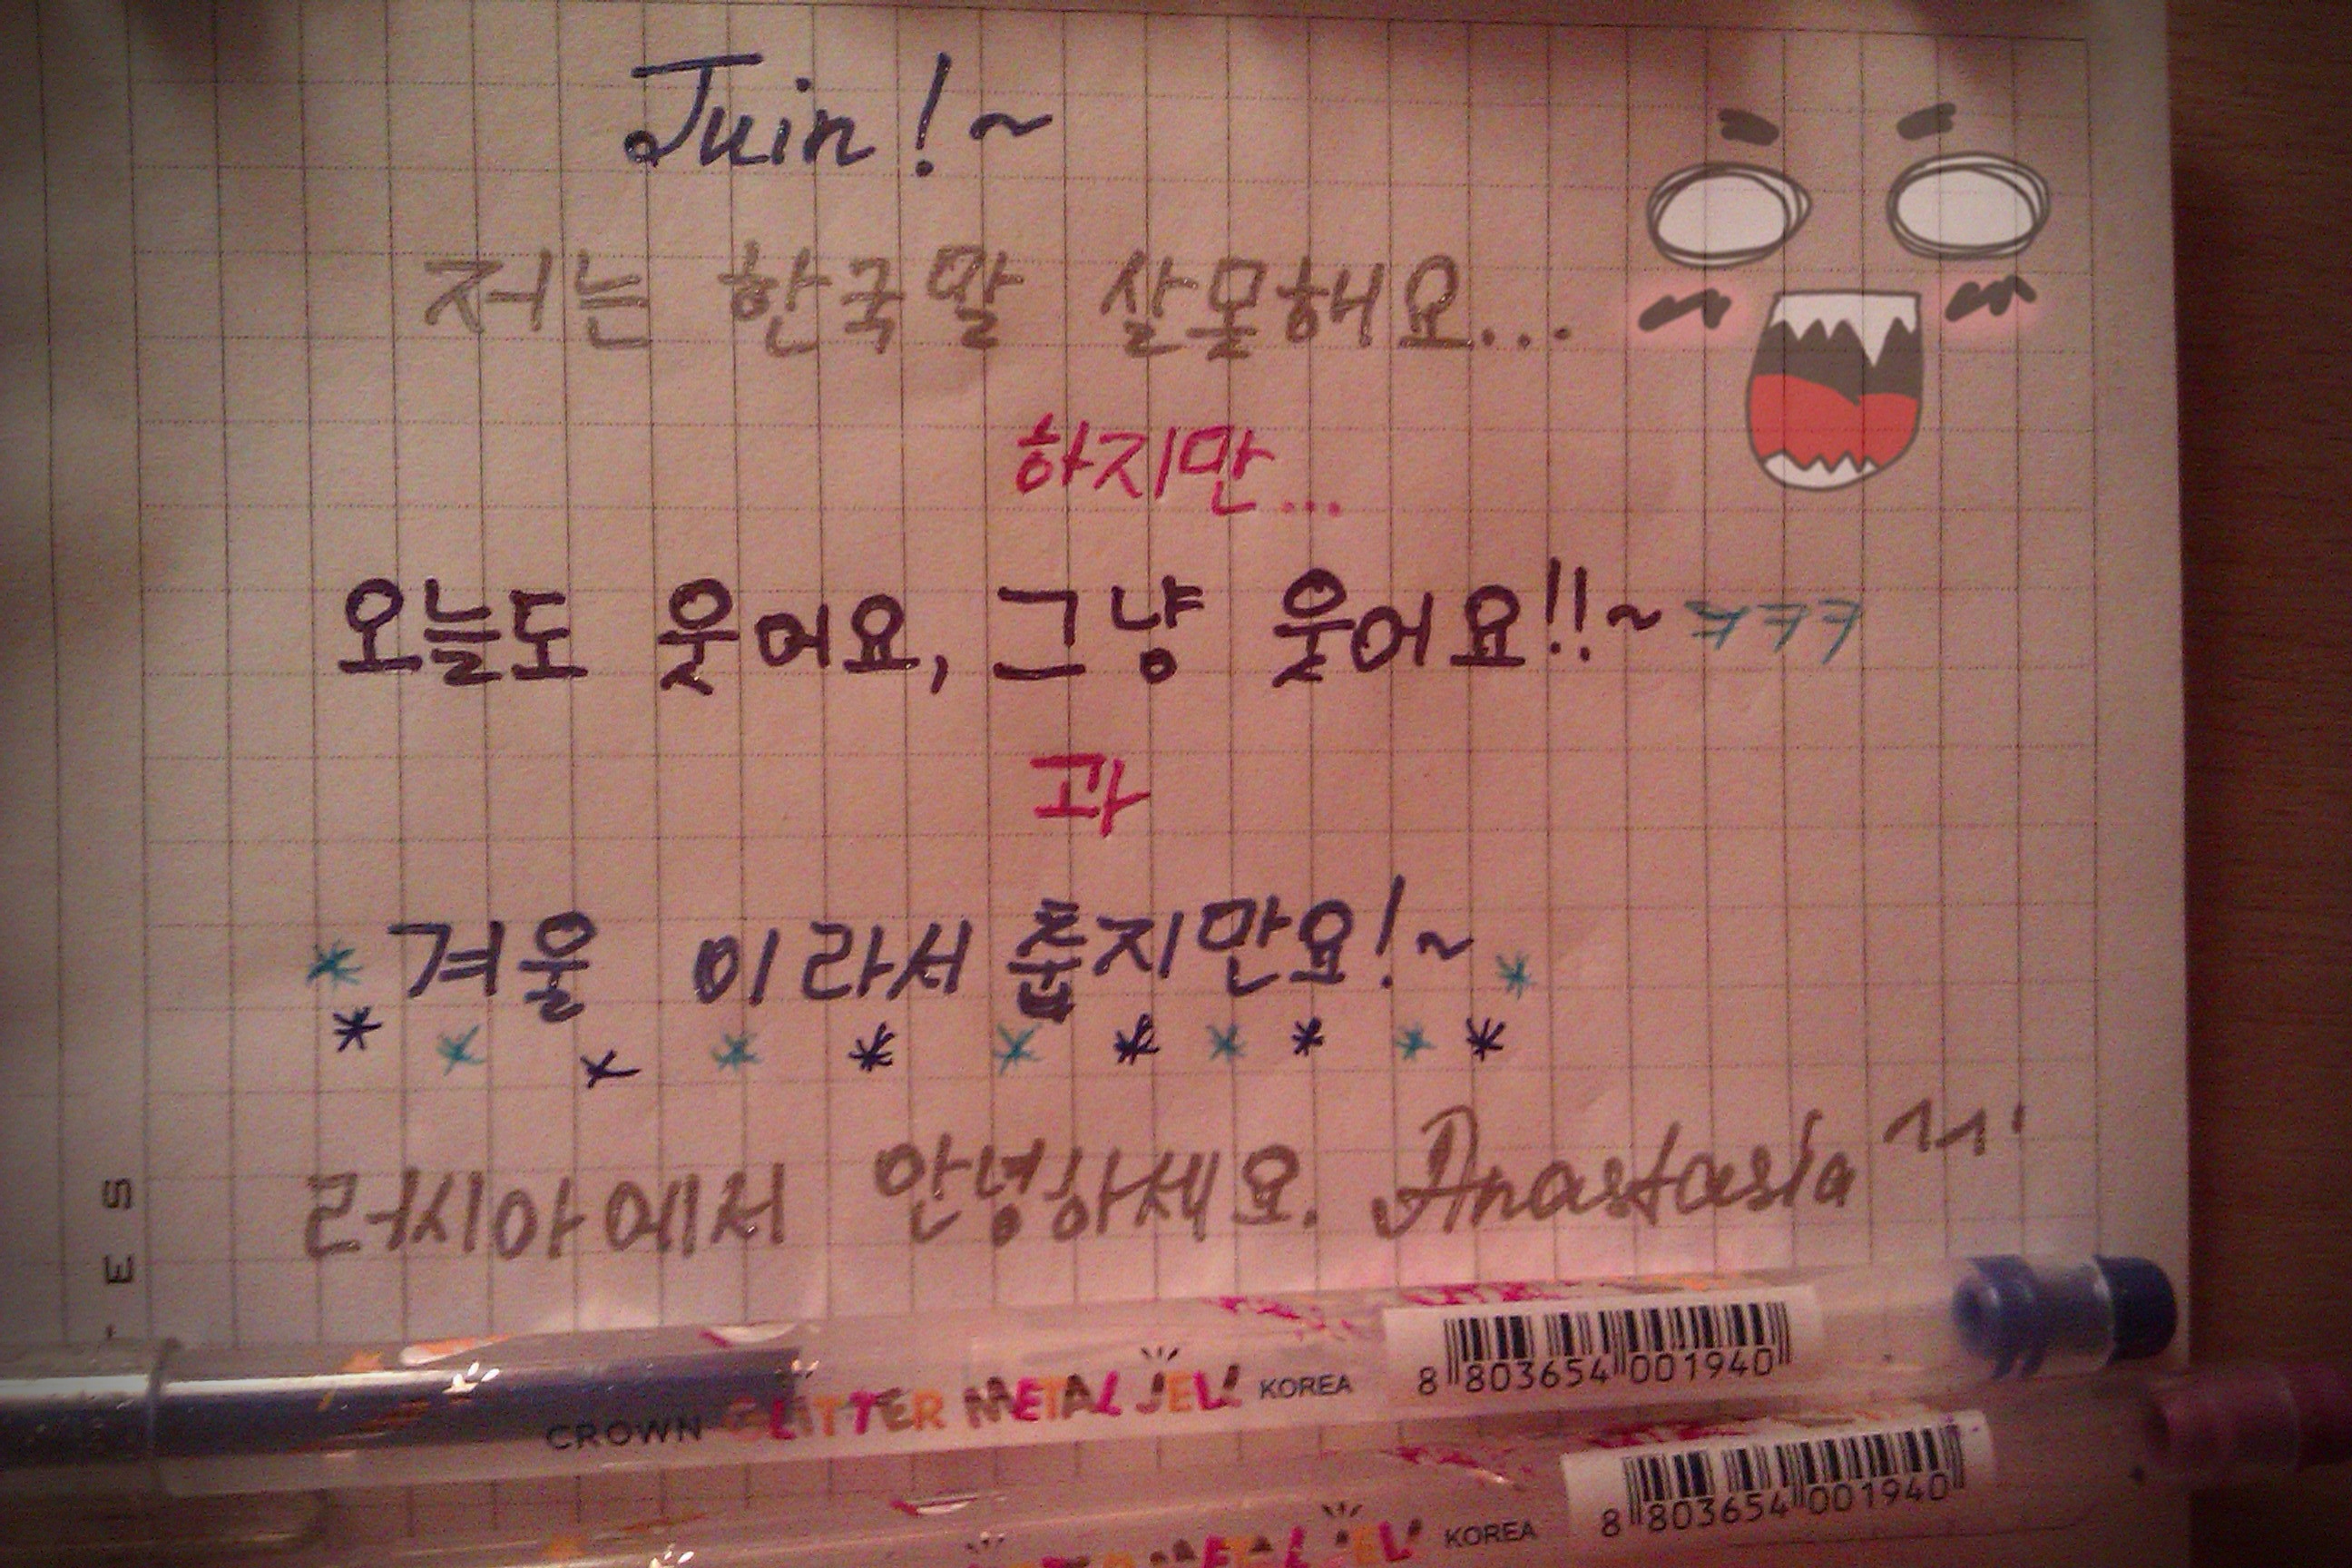 Juin!~
저는 한국말 살못해요...
하지만...
오늘도 웃어요, 그냥 웃어요!!~ ㅋㅋㅋ
과
* 겨울 이라서 춥지만요!~ *
* * * * * * * * * * *
러시아에서 안녕하세요. Anastasia ^^.
ES
CROWN GLITTER METAL JELL KOREA 8 803654 001940
METAL JELL KOREA 8 803654 001940